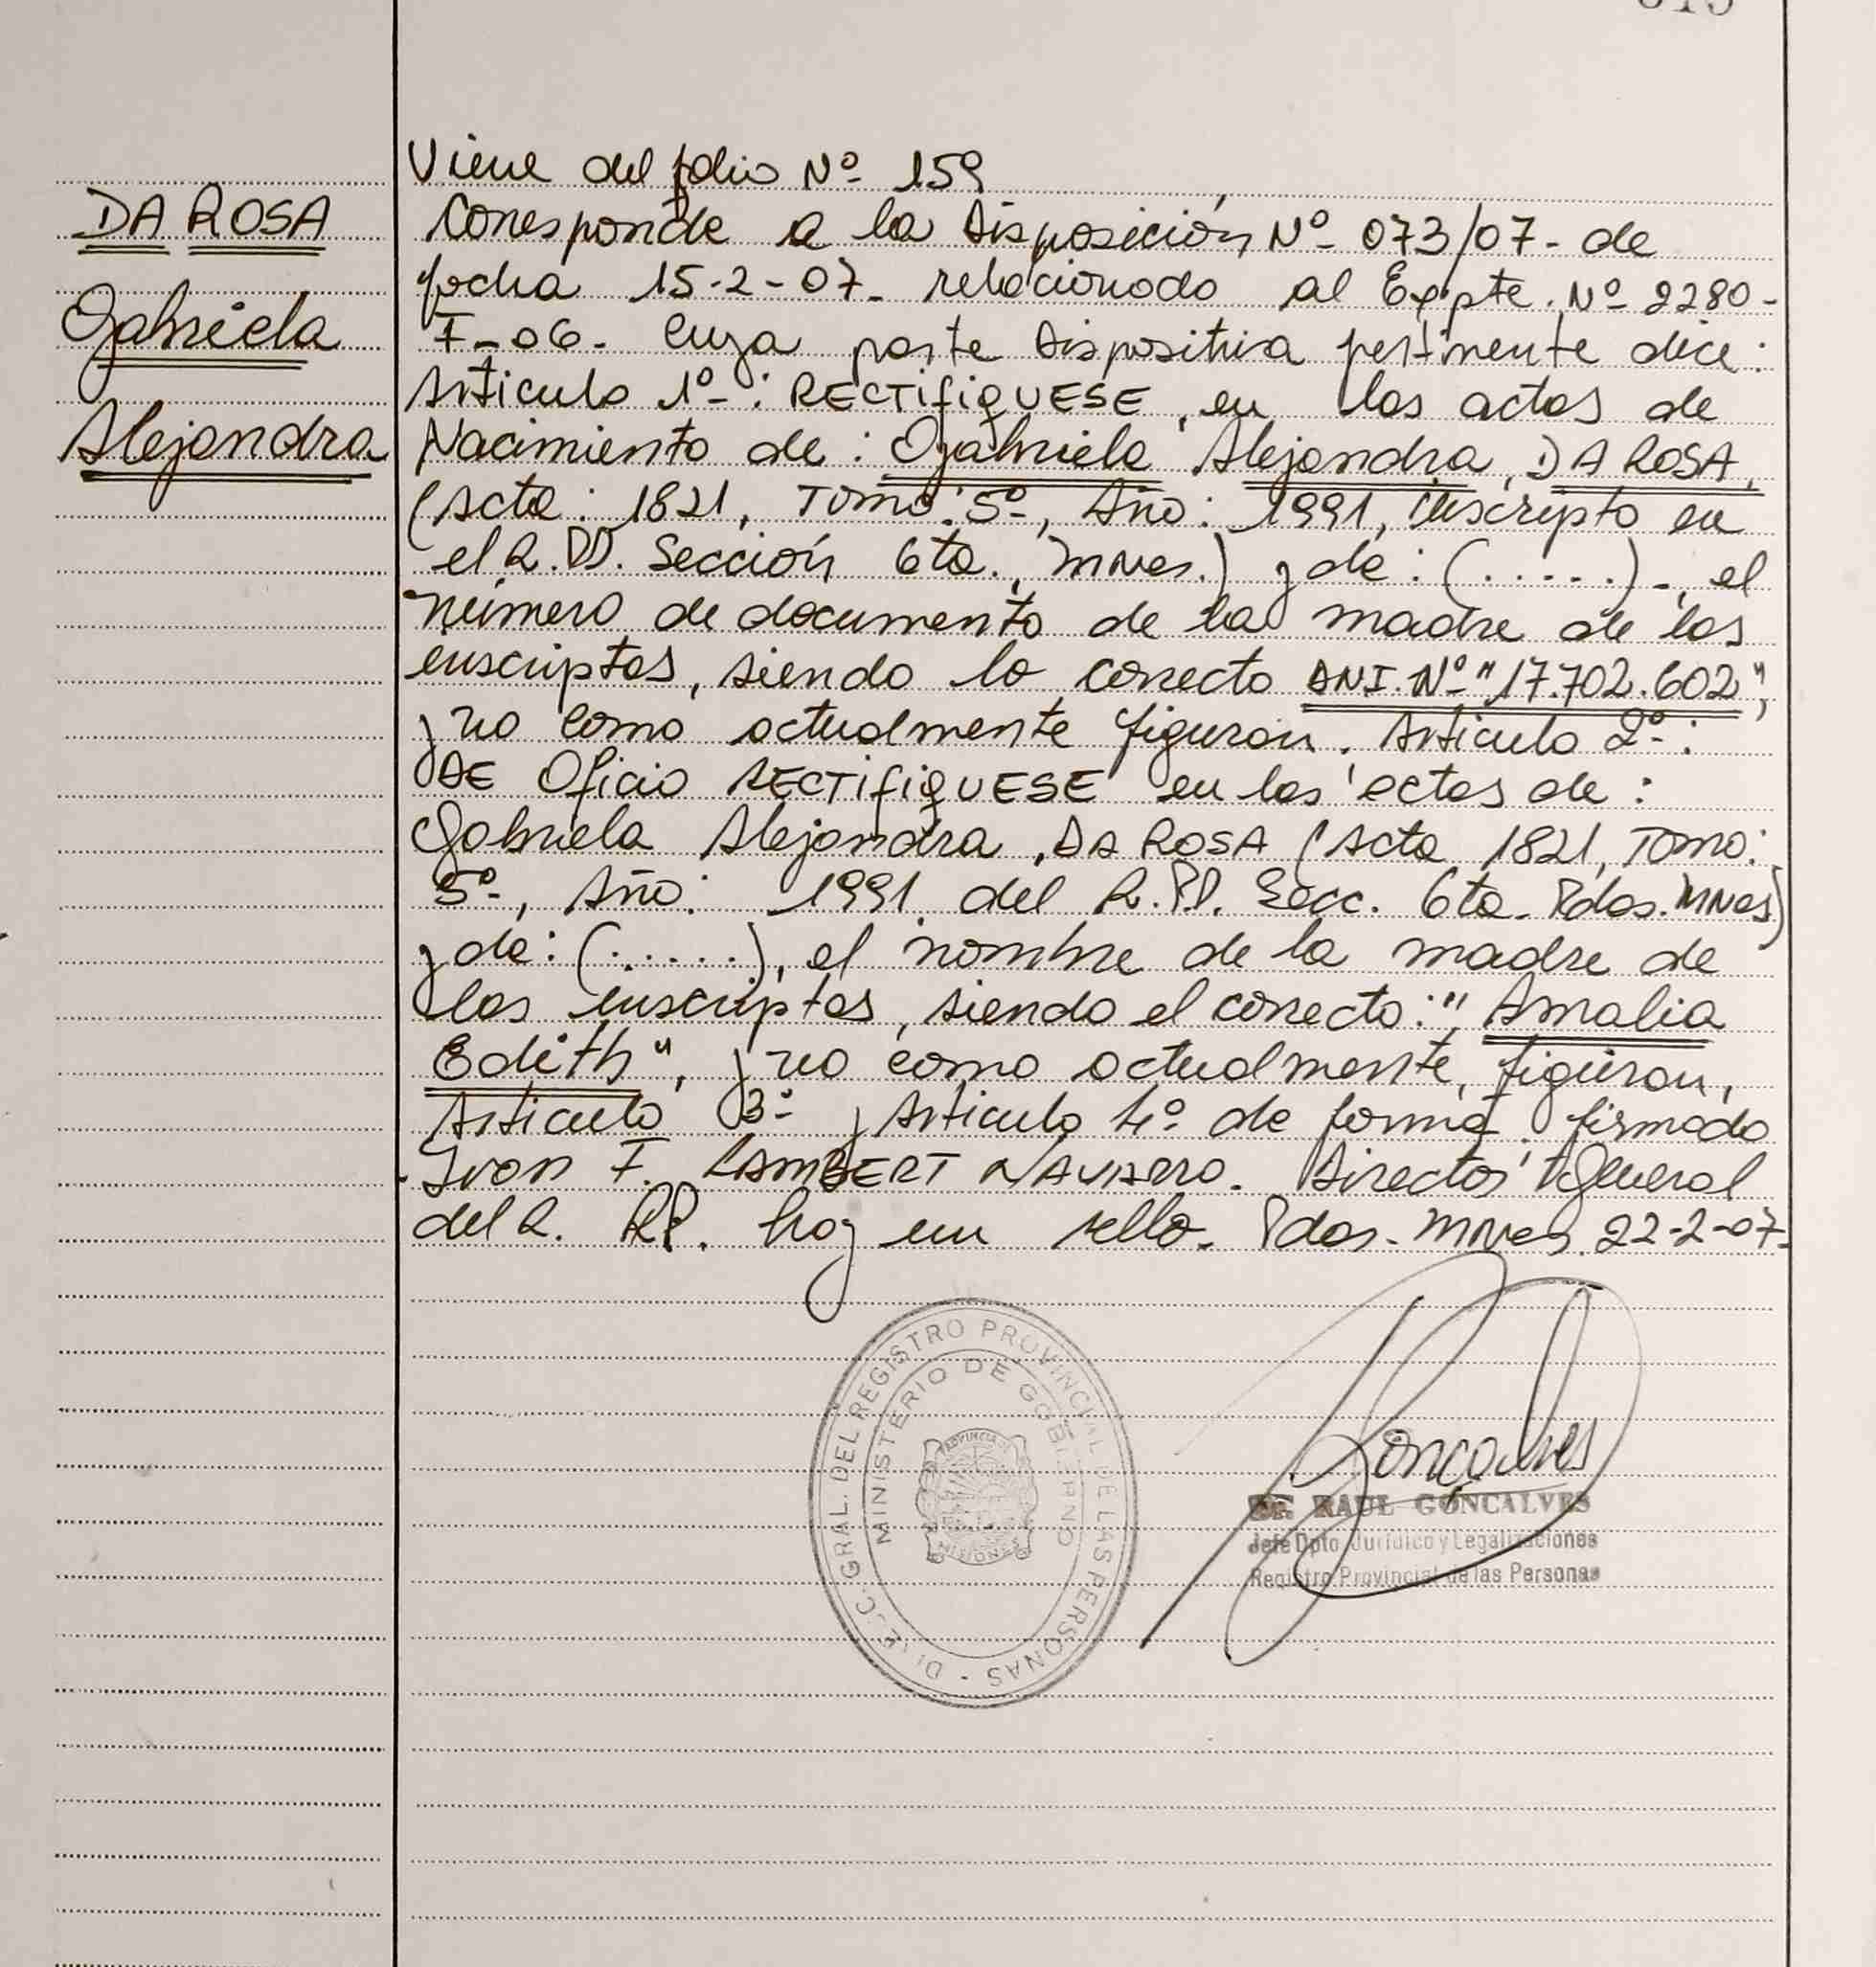 DA ROSA
Gabriela
Alejandra
Viene del folio Nº 159
Corresponde a la Disposición Nº 073/07- de
fecha 15-2-07- relacionado al Expte. Nº 2280-
F-06- Cuya parte dispositiva pertinente dice:
Artículo 1º-: RECTIFIQUESE, en las actas de
Nacimiento de: Gabriela Alejandra, DA ROSA,
(Acta: 1821, Tomo: 5º-, Año: 1991, inscripta en
el R.PP. Sección 6ta., Mnes.) y de: (.....)-, el
número de documento de la madre de los
inscriptos, siendo lo correcto DNI. Nº "17.702.602",
y no como actualmente figuran. Artículo 2º-:
DE Oficio RECTIFIQUESE en las actas de:
Gabriela Alejandra, DA ROSA (Acta 1821, Tomo:
5º-, Año: 1991, del R.PP. Secc. 6ta. Pdas. Mnes)
y de: (......), el nombre de la madre de
los inscriptos, siendo el correcto: "Amalia
Edith", y no como actualmente, figuran,
Artículo 3º- y Artículo 4º- de forma. firmado
Ivan F. LAMBERT NAVARRO. Director General
del R. PP. hay un sello. Pdas. Mnes. 22-2-07-
DIREC. GRAL. DEL REGISTRO PROVINCIAL DE LAS PERSONAS -
MINISTERIO DE GOBIERNO
PROVINCIA DE
MISIONES
Goncalves
Dr. RAUL GONCALVES
Jefe Dpto. Jurídico y Legalizaciones
Registro Provincial de las Personas